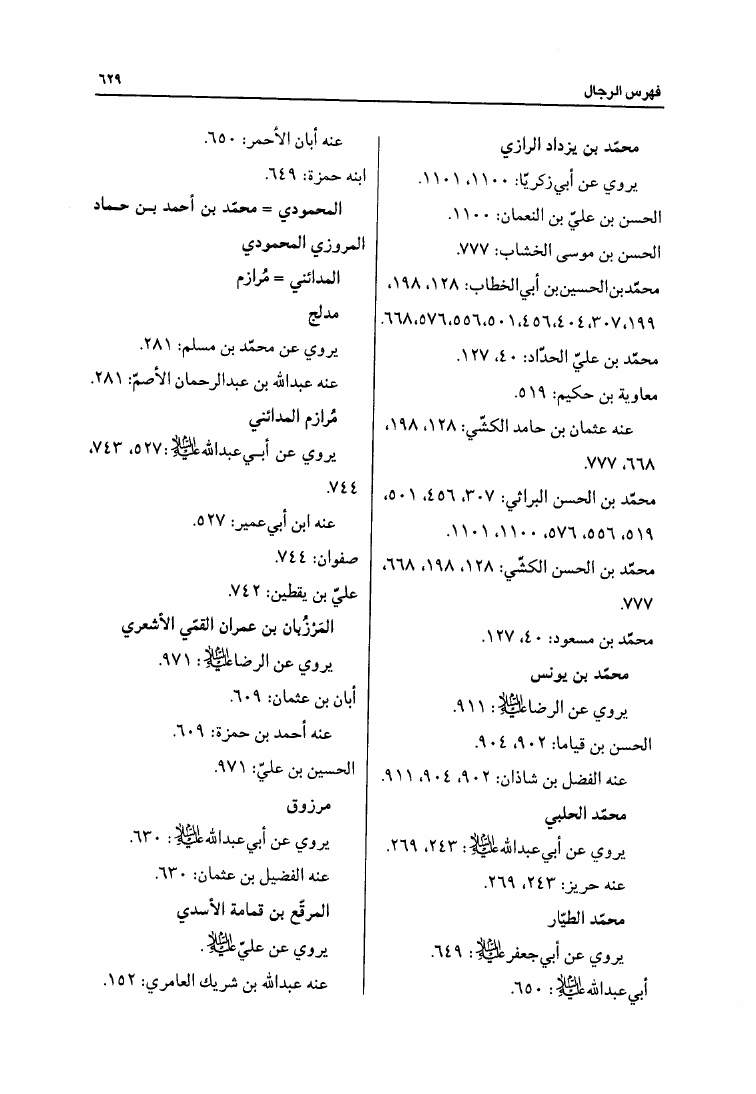 فهرس الرجال
٦٢٩
محمّد بن يزداد الرازي
يروي عن أبي‌زكريّا: ١١٠٠، ١١٠١.
الحسن بن عليّ بن النعمان: ١١٠٠.
الحسن بن موسى الخشاب: ٧٧٧.
محمّدبن‌الحسين‌بن أبي‌الخطاب: ١٢٨، ١٩٨،
١٩٩،٣٠٧،٤٠٤،٤٥٦،٥٠١،٥٥٦،٥٧٦،٦٦٨.
محمّد بن عليّ الحدّاد: ٤٠، ١٢٧.
معاوية بن حكيم: ٥١٩.
عنه عثمان بن حامد الكشّي: ١٢٨، ١٩٨،
٦٦٨، ٧٧٧.
محمّد بن الحسن البراثي: ٣٠٧، ٤٥٦، ٥٠١،
٥١٩، ٥٥٦، ٥٧٦، ١١٠٠، ١١٠١.
محمّد بن الحسن الكشّي: ١٢٨، ١٩٨، ٦٦٨،
٧٧٧.
محمّد بن مسعود: ٤٠، ١٢٧.
محمّد بن يونس
يروي عن الرضا عليه السلام: ٩١١.
الحسن بن قياما: ٩٠٢، ٩٠٤.
عنه الفضل بن شاذان: ٩٠٢، ٩٠٤، ٩١١.
محمّد الحلبي
يروي عن أبي‌عبدالله عليه السلام: ٢٤٣، ٢٦٩.
عنه حريز: ٢٤٣، ٢٦٩.
محمّد الطيّار
يروي عن أبي‌جعفر عليه السلام: ٦٤٩.
أبي‌عبدالله عليه السلام: ٦٥٠.
عنه أبان الأحمر: ٦٥٠.
ابنه حمزة: ٦٤٩.
المحمودي = محمّد بن أحمد بـن حـماد
المروزي المحمودي
المدائني = مُرازم
مدلج
يروي عن محمّد بن مسلم: ٢٨١.
عنه عبدالله بن عبدالرحمان الأصمّ: ٢٨١.
مُرازم المدائني
يروي عن أبـي‌عبدالله عليه السلام:٥٢٧، ٧٤٣،
٧٤٤.
عنه ابن أبي‌عمير: ٥٢٧.
صفوان: ٧٤٤.
عليّ بن يقطين: ٧٤٢.
المَرْزُبان بن عمران القمّي الأشعري
يروي عن الرضا عليه السلام: ٩٧١.
أبان بن عثمان: ٦٠٩.
عنه أحمد بن حمزة: ٦٠٩.
الحسين بن عليّ: ٩٧١.
مرزوق
يروي عن أبي‌عبدالله عليه السلام: ٦٣٠.
عنه الفضيل بن عثمان: ٦٣٠.
المرقّع بن قمامة الأسدي
يروي عن عليّ عليه السلام.
عنه عبدالله بن شريك العامري: ١٥٢.